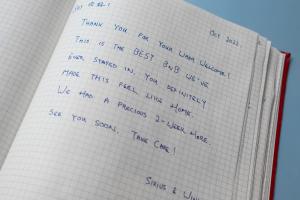 Oct 2022
THANK YOU FOR YOUR WARM WELCOME!
THIS IS THE BEST BNB WE'VE
EVER STAYED IN. YOU DEFINITELY
MADE THIS FEEL LIKE HOME.
WE HAD A PRECIOUS 2-WEEK HERE.
SEE YOU SOON, TAKE CARE!
SIRIUS &